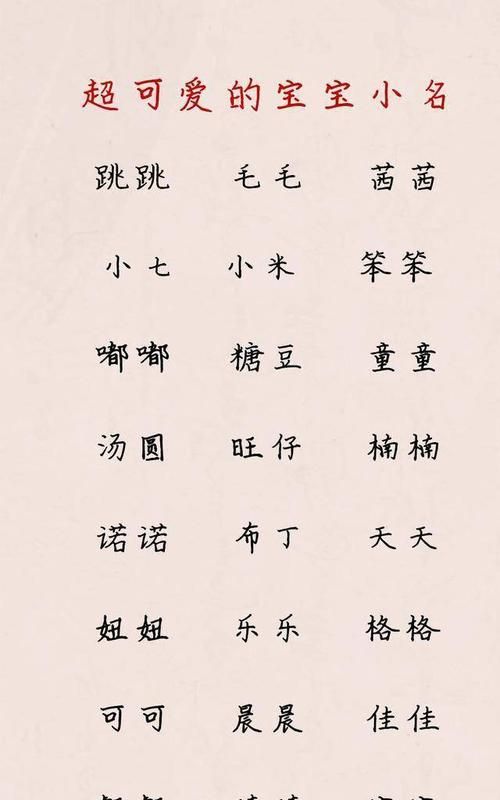 超可爱的宝宝小名
跳跳 毛毛 茜茜
小七 小米 笨笨
嘟嘟 糖豆 童童
汤圆 旺仔 楠楠
诺诺 布丁 天天
妞妞 乐乐 格格
可可 晨晨 佳佳